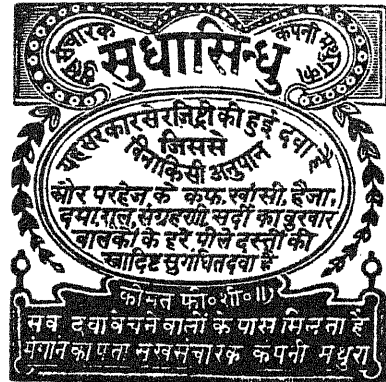 सुख संचारक कंपनी मथुरा का
सुधासिन्धु
यह सरकार से रजिष्ट्री की हुई दवा है
जिससे
बिना किसी अनुपान
और परहेज के कफ, खांसी, हैजा,
दमा, शूल, संग्रहणी, सर्दी का बुखार
बालकों के हरे, पीले दस्तों की
स्वादिष्ट सुगंधित दवा है
कीमत फी॰ शी॰ ॥)
सब दवा बेचने वालों के पास मिलता है
मंगाने का पता सुखसंचारक कंपनी मथुरा